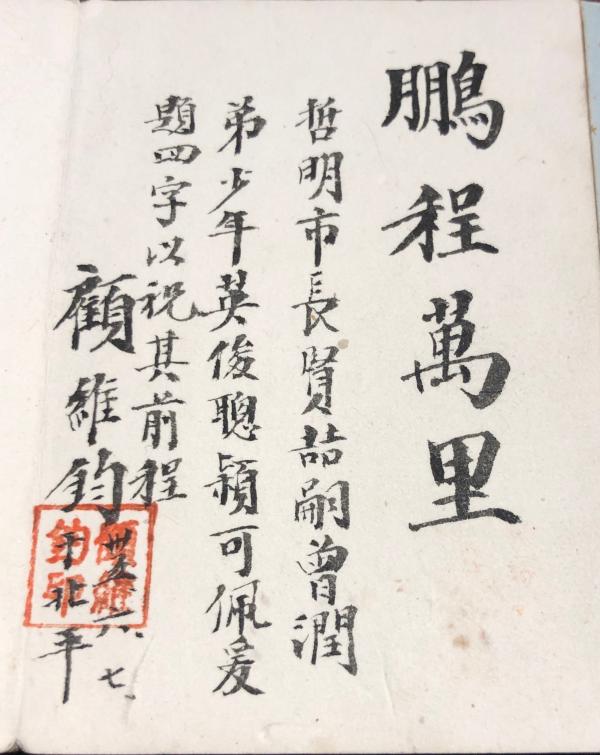 鵬程萬里
哲明市長賢喆嗣曾潤
弟少年英俊聰穎可佩爰
題四字以祝其前程
顧維鈞
卅五、六、七、
于北平
顧維鈞印